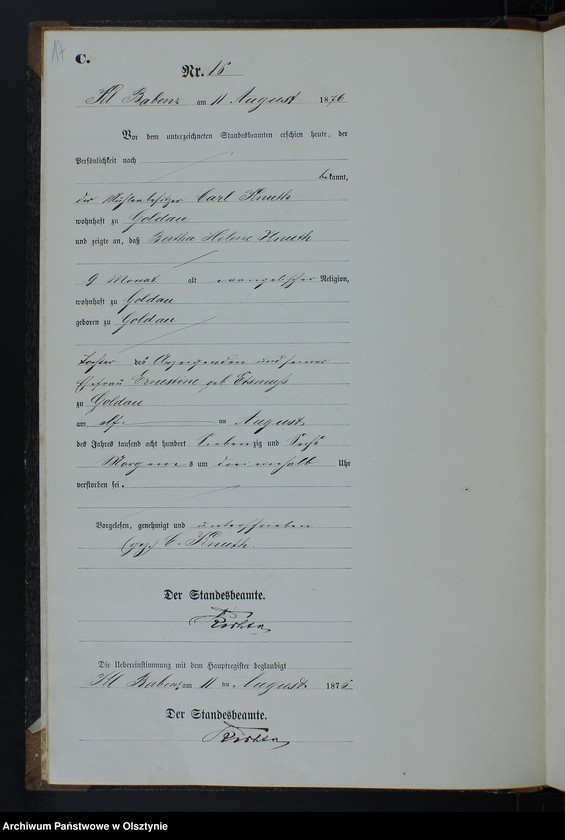 17
C.
Nr. 16
Kl Babenz am 11 August 1876
Vor dem unterzeichneten Standesbeamten erschien heute, der
Persönlichkeit nach
bekannt,
der Mühlenbesitzer Carl Knuth
wohnhaft zu Goldau
und zeigte an, daß Bertha Helene Knuth
9 Monat alt evangelischer Religion,
wohnhaft zu Goldau
geboren zu Goldau
Tochter des Anzeigenden und seiner
Ehefrau Ernestine geb
zu Goldau
am elf im August
des Jahres tausend acht hundert siebenzig und sechs
Morgens um drei einhalb Uhr
verstorben sei.
Vorgelesen, genehmigt und unterschrieben
(gez) C. Knuth.
Der Standesbeamte.
Die Uebereinstimmung mit dem Hauptregister beglaubigt
Kl Babenz am 11 ten August 1876
Der Standesbeamte.
Archiwum Państwowe w Olsztynie